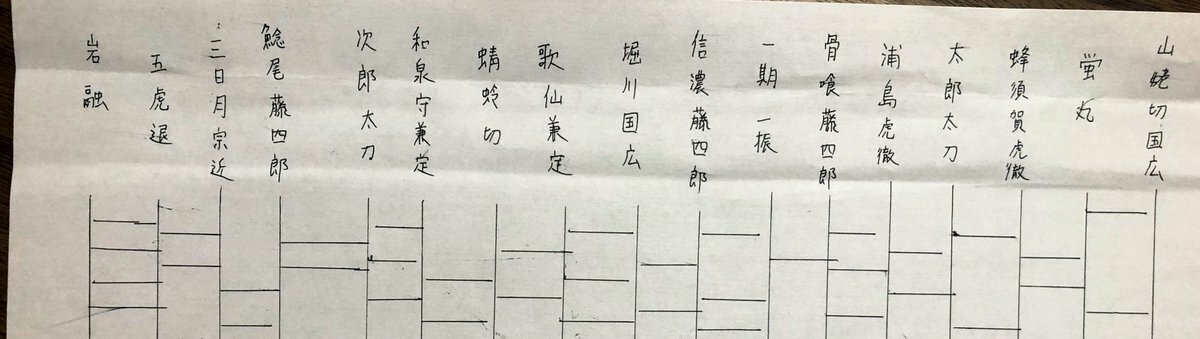 山姥切国広
蛍丸
蜂須賀虎徹
太郎太刀
浦島虎徹
骨喰藤四郎
一期一振
信濃藤四郎
堀川国広
歌仙兼定
蜻蛉切
和泉守兼定
次郎太刀
鯰尾藤四郎
三日月宗近
五虎退
岩融